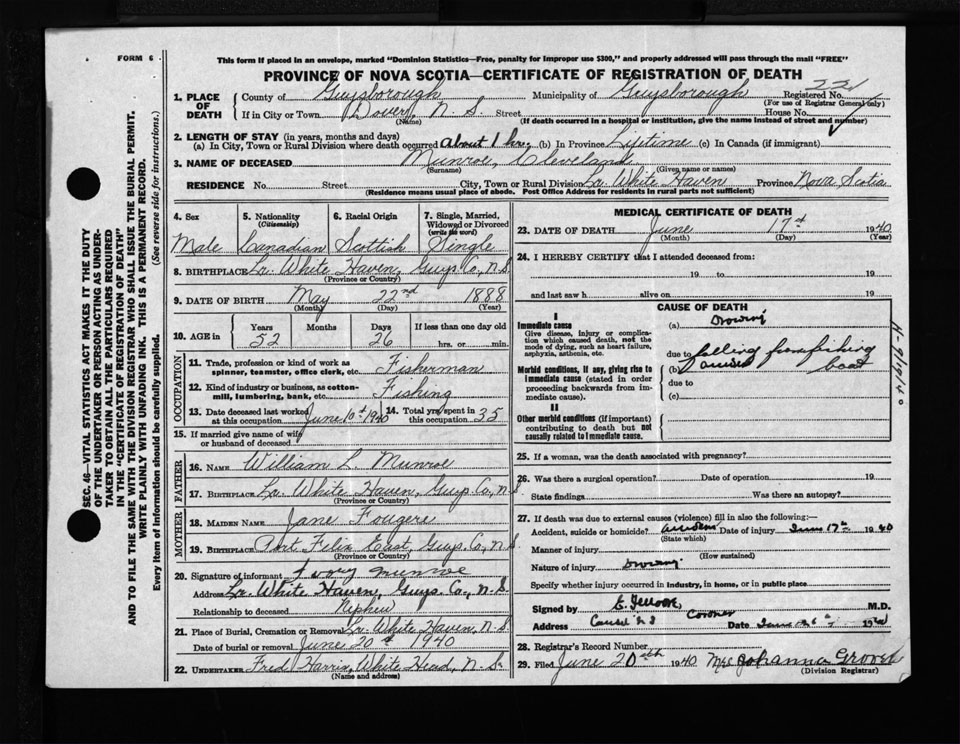 FORM 6
This form if placed in an envelope, marked "Dominion Statistics—Free, penalty for improper use $300," and properly addressed will pass through the mail "FREE"
PROVINCE OF NOVA SCOTIA—CERTIFICATE OF REGISTRATION OF DEATH
1. PLACE OF DEATH
County of Guysborough Municipality of Guysborough Registered No. 221
(For use of Registrar General only)
If in City or Town Dover, N. S. Street House No.
(Name) (If death occurred in a hospital or institution, give the name instead of street and number)
2. LENGTH OF STAY (in years, months and days)
(a) In City, Town or Rural Division where death occurred About 1 hr. (b) In Province Lifetime (c) In Canada (if immigrant)
3. NAME OF DECEASED Munroe, Cleveland
(Surname) (Given name or names)
RESIDENCE No. Street City, Town or Rural Division Lr. White Haven Province Nova Scotia
(Residence means usual place of abode. Post Office Address for residents in rural parts not sufficient)
4. Sex Male
5. Nationality (Citizenship) Canadian
6. Racial Origin Scottish
7. Single, Married, Widowed or Divorced (write the word) Single
8. BIRTHPLACE Lr. White Haven, Guys. Co., N.S.
(Province or Country)
9. DATE OF BIRTH May 22nd 1888
(Month) (Day) (Year)
10. AGE in Years 52 Months Days 26 If less than one day old hrs. or min.
OCCUPATION
11. Trade, profession or kind of work as spinner, teamster, office clerk, etc. Fisherman
12. Kind of industry or business, as cotton-mill, lumbering, bank, etc. Fishing
13. Date deceased last worked at this occupation June 10th 1940 14. Total yrs. spent in this occupation 35
15. If married give name of wife or husband of deceased
FATHER
16. NAME William L. Munroe
17. BIRTHPLACE Lr. White Haven, Guys. Co., N.S
(Province or Country)
MOTHER
18. MAIDEN NAME Jane Fougere
19. BIRTHPLACE Port Felix East, Guys. Co., N.S.
(Province or Country)
20. Signature of informant Ivory Munroe
Address Lr. White Haven, Guys. Co., N.S.
Relationship to deceased Nephew
21. Place of Burial, Cremation or Removal Lr. White Haven, N.S.
Date of burial or removal June 20th 1940
22. UNDERTAKER Fred Harris, White Head, N.S.
(Name and address)
MEDICAL CERTIFICATE OF DEATH
23. DATE OF DEATH June 17th 1940
(Month) (Day) (Year)
24. I HEREBY CERTIFY that I attended deceased from:
19 to 19
and last saw h alive on 19
CAUSE OF DEATH
I
Immediate cause
Give disease, injury or complication which caused death, not the mode of dying, such as heart failure, asphyxia, asthenia, etc.
(a)
due to falling from fishing boat
Morbid conditions, if any, giving rise to immediate cause (stated in order proceeding backwards from immediate cause).
(b)
due to
(c)
II
Other morbid conditions (if important) contributing to death but not causally related to immediate cause.
25. If a woman, was the death associated with pregnancy?
26. Was there a surgical operation? Date of operation 19
State findings Was there an autopsy?
27. If death was due to external causes (violence) fill in also the following:—
Accident, suicide or homicide? accident Date of injury June 17th 1940
(State which)
Manner of injury
(How sustained)
Nature of injury
Specify whether injury occurred in industry, in home, or in public place
Signed by M.D.
Address Canso N S Coroner Date 1940
28. Registrar's Record Number
29. Filed June 20th 1940 Mrs. Johanna
(Division Registrar)
SEC. 46—VITAL STATISTICS ACT MAKES IT THE DUTY
OF THE UNDERTAKER OR PERSON ACTING AS UNDER-
TAKER TO OBTAIN ALL THE PARTICULARS REQUIRED
IN THE "CERTIFICATE OF REGISTRATION OF DEATH"
AND TO FILE THE SAME WITH THE DIVISION REGISTRAR WHO SHALL ISSUE THE BURIAL PERMIT.
WRITE PLAINLY WITH UNFADING INK. THIS IS A PERMANENT RECORD.
Every item of Information should be carefully supplied. (See reverse side for instructions.)